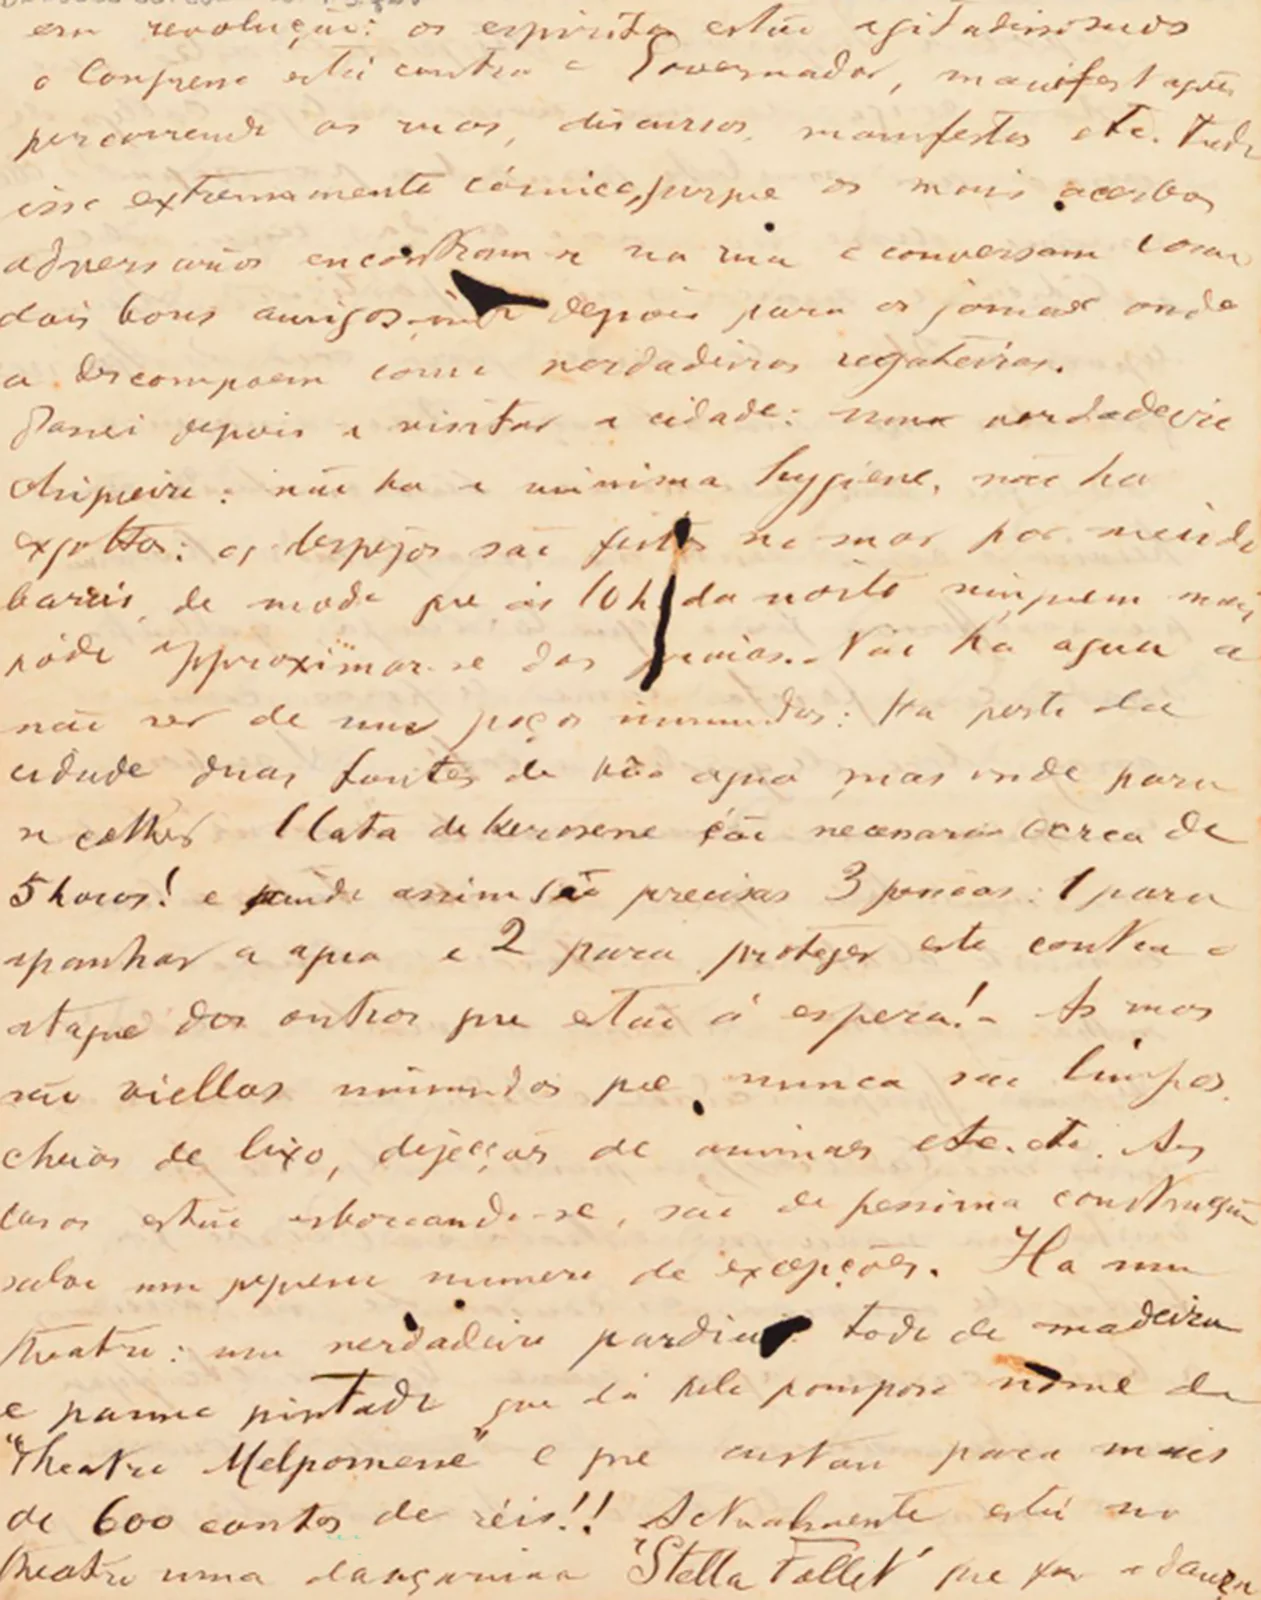 em revolução: os espiritos estão agitadissimos
o Congresso está contra o Governador, manifestações
percorrendo as ruas, discursos, manifestos etc. Tudo
isso extremamente cómico, porque os mais acerbos
adversarios encontram-se na rua e conversam como
dois bons amigos, indo depois para os jornaes onde
se descompoem como verdadeiras regateiras.
Passei depois a visitar a cidade: uma verdadeira
chiqueiro: não ha a minima hygiene, não ha
exgottos: os despejos são feitos no mar por meio de
barris, de modo que ás 10 h. da noite ninguem mais
póde approximar-se das praias. Não ha agua a
não ser de uns poços immundos: ha perto da
cidade duas fontes de bôa agua mas onde para
se colher 1 lata de kerosene são necessarias cerca de
5 horas! e ainda assim são precisas 3 pessoas: 1 para
apanhar a agua e 2 para proteger esta contra o
ataque dos outros que estão á espera! As ruas
são viellas immundas que nunca são limpas,
cheias de lixo, dejecções de animaes etc. etc. As
casas estão esboroando-se, são de pessima construcção
salvo um pequeno numero de excepções. Ha um
theatro: um verdadeiro pardieiro todo de madeira
e panno pintado que dá pelo pomposo nome de
"Theatro Melpomene" e que custou para mais
de 600 contos de réis!! Actualmente está no
theatro uma dançarina "Stella Follet" que faz a dança